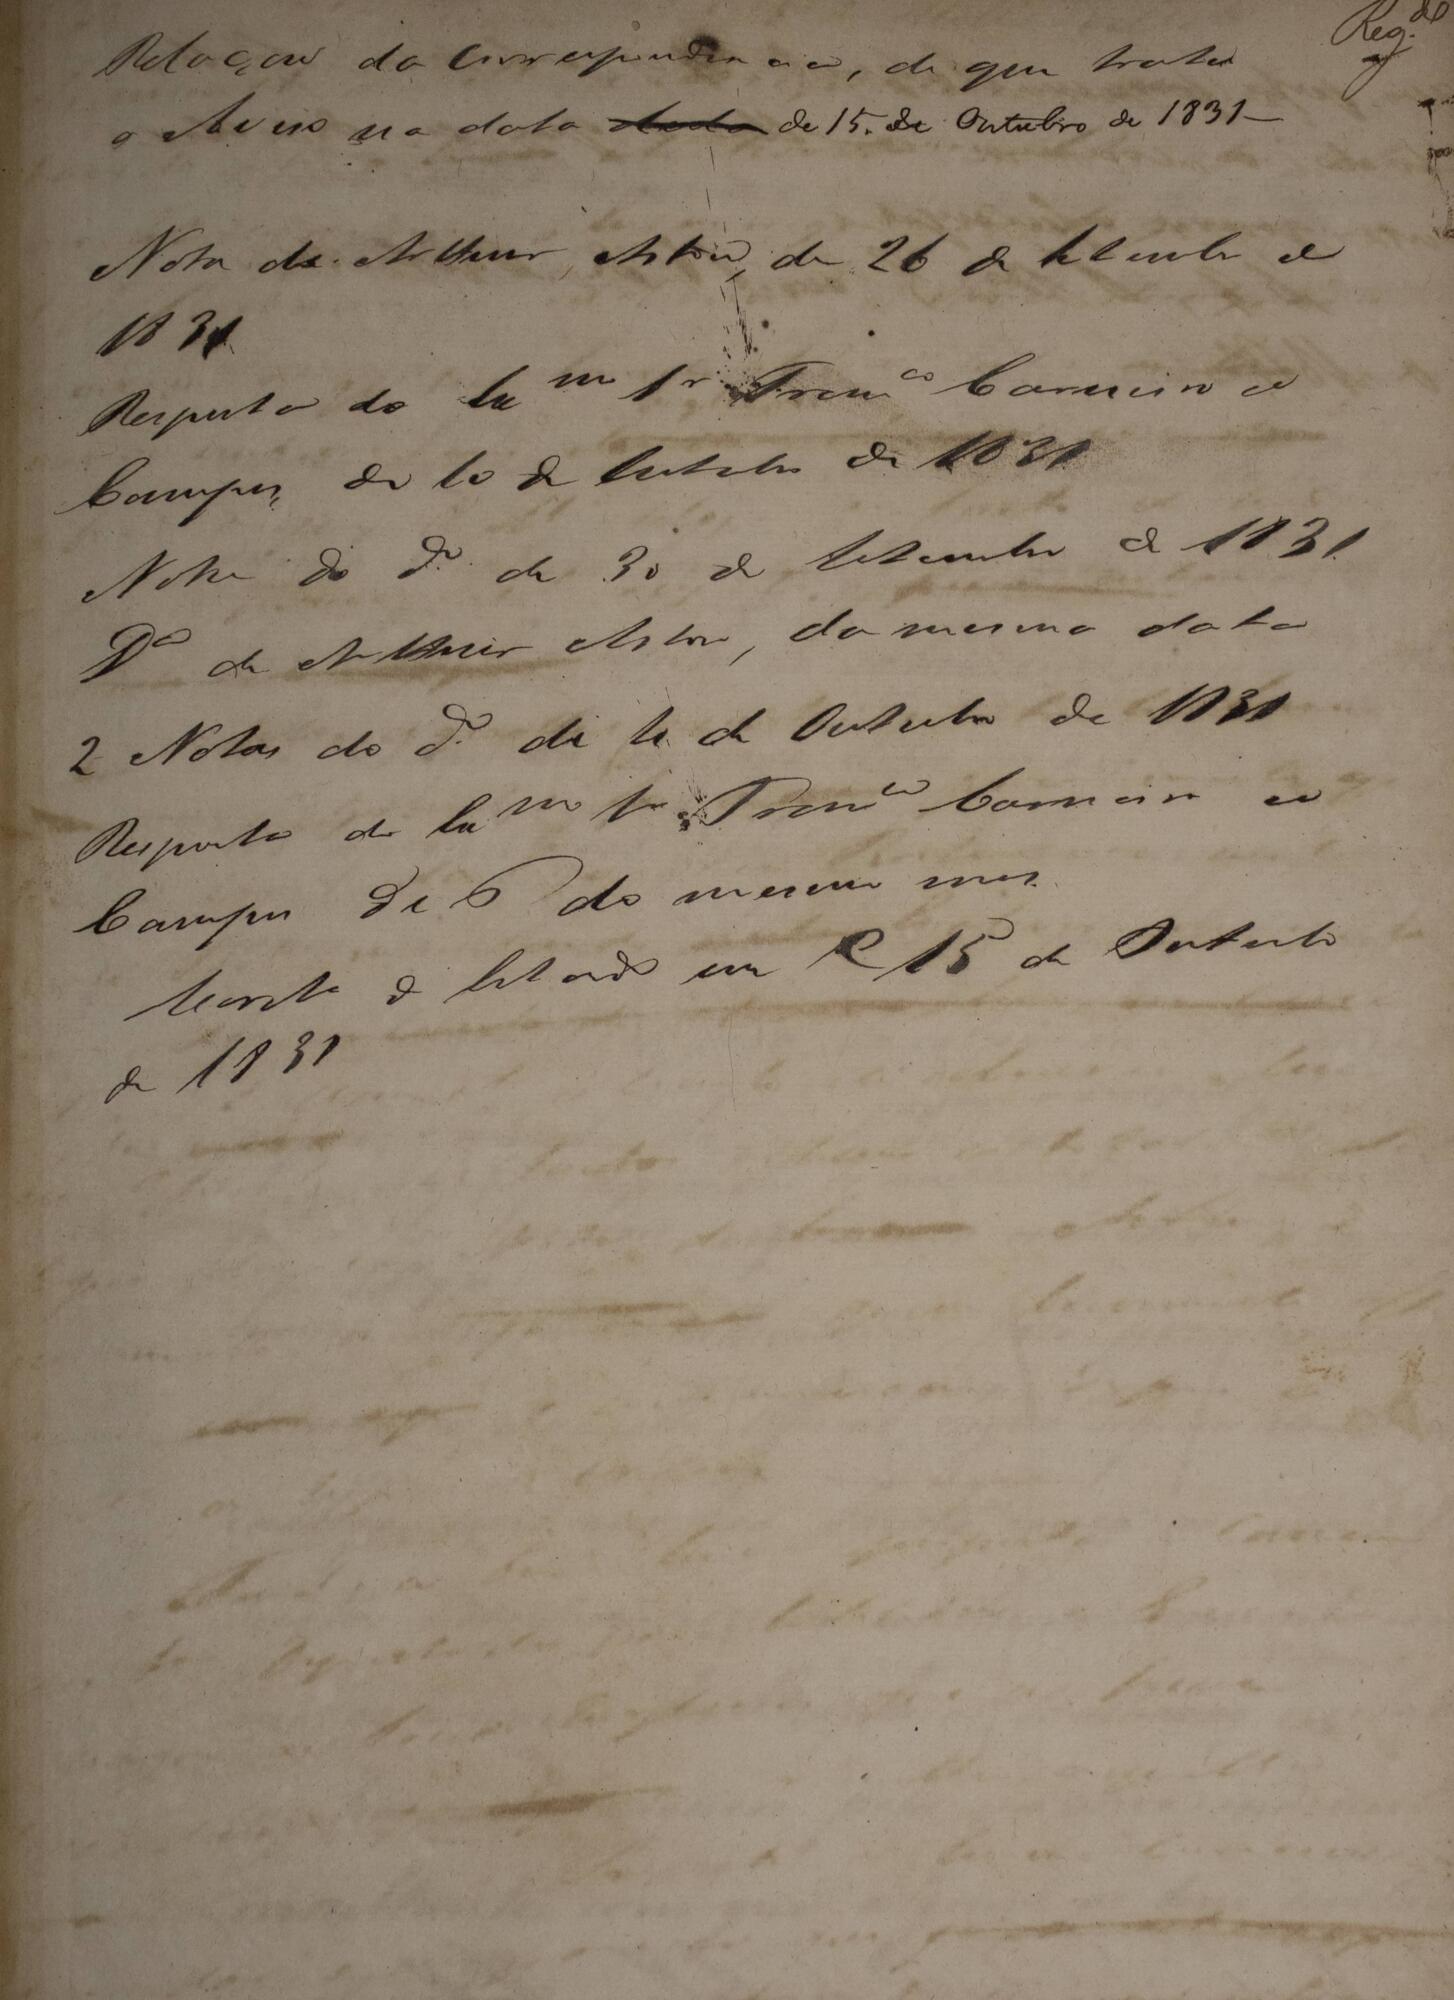 Reg.do
Relaçaõ da Correspondencia, de que trata
o Aviso na data de 15. de Outubro de 1831—
Nota de Arthur Aston, de 26 de Setembro de
1831
Resposta do Exmo Sr Franco Carneiro de
Campos, de 10 de Outubro de 1831
Nota do do. de 30 de Setembro de 1831
Da de Arthur Aston, da mesma data
2 Notas do do. de de Outubro de 1831
Resposta do Exmo Sr Franco Carneiro de
Campos de 6 do mesmo mes.
Secreta de Estado em 15 de Outubro
de 1831